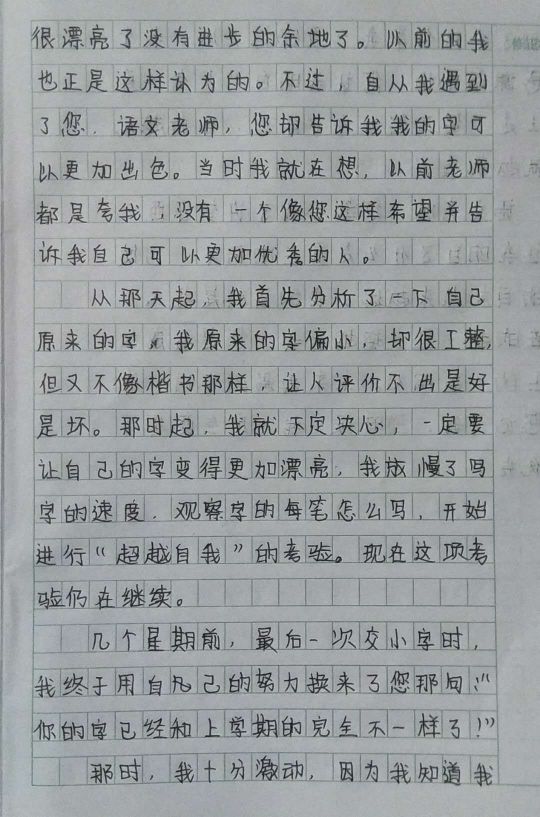 很漂亮了没有进步的余地了。以前的我
也正是这样认为的。不过，自从我遇到
了您，语文老师，您却告诉我我的字可
以更加出色。当时我就在想，以前老师
都是夸我，没有一个像您这样希望并告
诉我自己可以更加优秀的人。
从那天起，我首先分析了一下自己
原来的字。我原来的字偏小，却很工整，
但又不像楷书那样，让人评价不出是好
是坏。那时起，我就下定决心，一定要
让自己的字变得更加漂亮，我放慢了写
字的速度，观察字的每笔怎么写，开始
进行“超越自我”的考验。现在这项考
验仍在继续。
几个星期前，最后一次交小字时，
我终于用自己的努力换来了您那句：“
你的字已经和上学期的完全不一样了！”
那时，我十分激动，因为我知道我